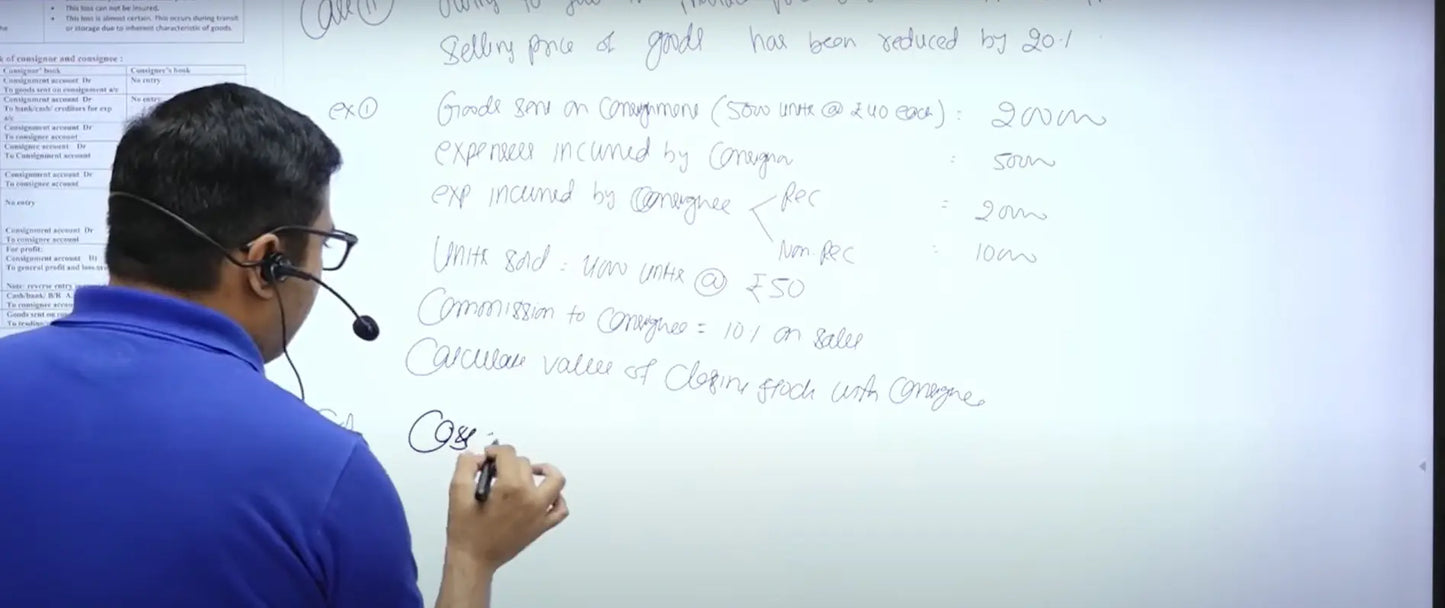 This loss can not be insured.
This loss is almost certain. This occurs during transit
or storage due to inherent characteristic of goods.
k of consignor and consignee :
Consignor' book Consignee's book
Consignment account Dr No entry
To goods sent on consignment a/c
Consignment account Dr No entry
To bank/cash/ creditors for exp
A/c
Consignment account Dr
To consignee account
Consignee account Dr
To Consignment account
Consignment account Dr
To consignee account
No entry
Consignment account Dr
To consignee account
For profit:
Consignment account Dr
To general profit and loss
Note: reverse entry
Cash/bank/ B/R A
To consignee
Goods sent on
To trading
Case (ii) Owing to
Selling price of goods has been reduced by 20%
ex ① Goods sent on Consignment (5000 units @ ₹40 each) : 200000
expenses incurred by Consignor : 5000
exp incurred by Consignee Rec = 2000
Non-Rec : 1000
Units sold : 4000 units @ ₹50
Commission to Consignee = 10% on sales
Calculate value of Closing stock with Consignee
Cos